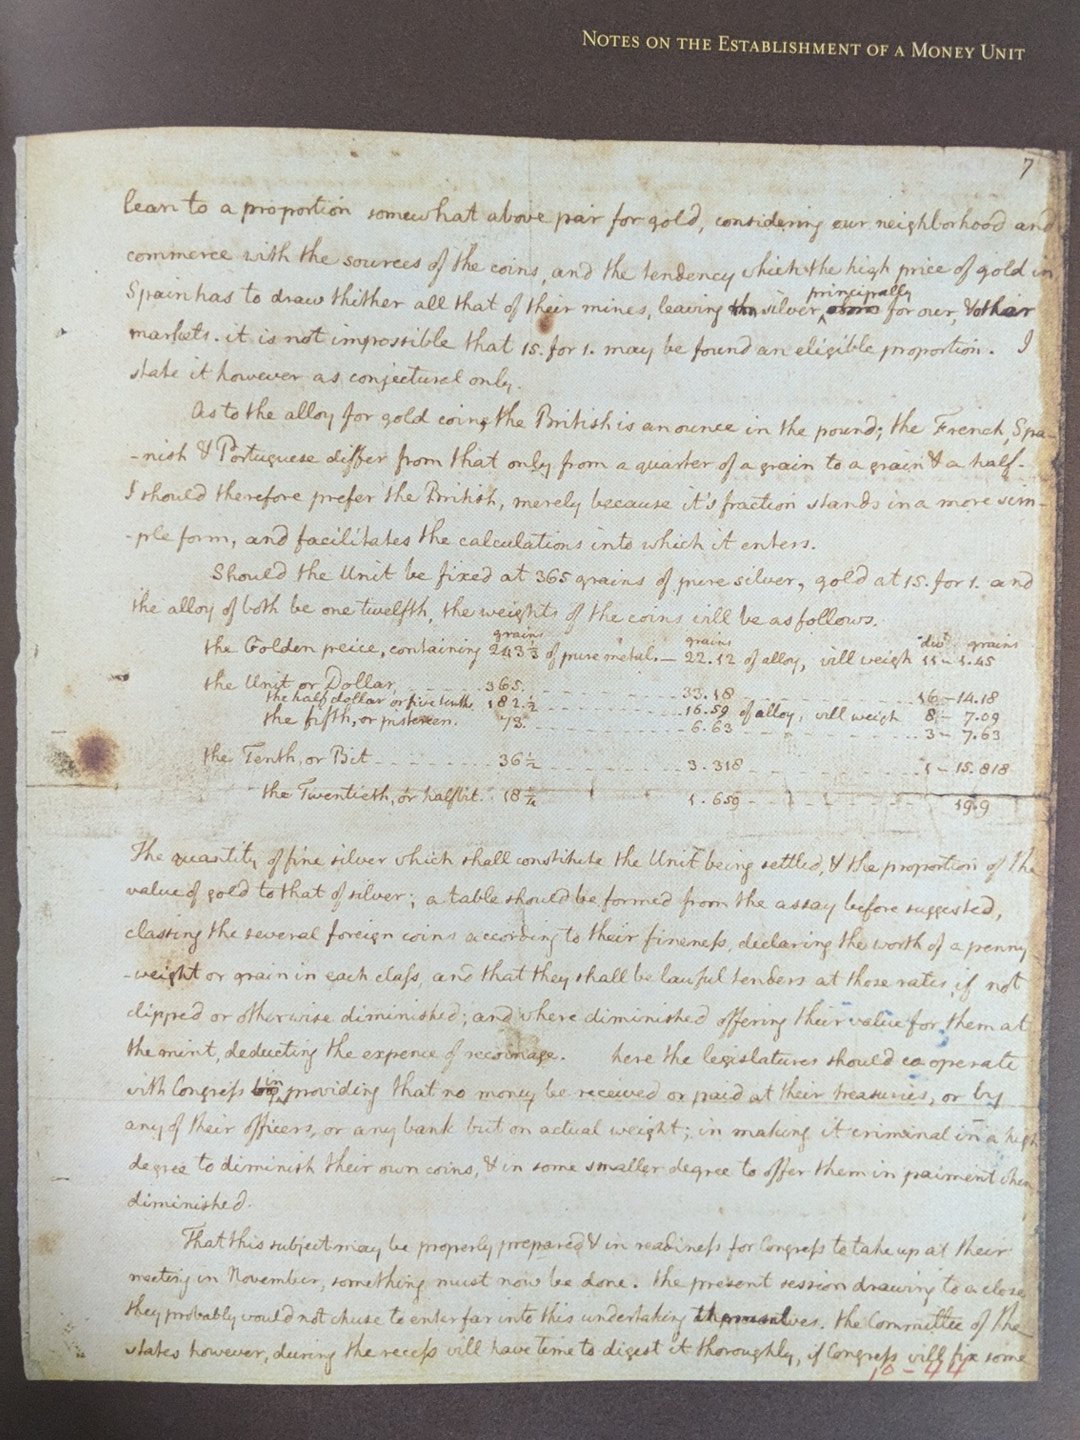 NOTES ON THE ESTABLISHMENT OF A MONEY UNIT
7
lean to a proportion somewhat above pair for gold, considering our neighborhood and
commerce with the sources of the coins, and the tendency which the high price of gold in
Spain has to draw thither all that of their mines, leaving silver principally for our, & other
markets. it is not impossible that 15. for 1. may be found an eligible proportion. I
state it however as conjectural only.
As to the alloy for gold coin, the British is an ounce in the pound; the French, Spa-
-nish & Portuguese differ from that only from a quarter of a grain to a grain & a half.
I should therefore prefer the British, merely because it's fraction stands in a more sim-
-ple form, and facilitates the calculations into which it enters.
Should the Unit be fixed at 365 grains of pure silver, gold at 15. for 1. and
the alloy of both be one twelfth, the weights of the coins will be as follows.
grains grains dwt grains
the Golden peice, containing 243⅓ of pure metal. — 22.12 of alloy, will weigh 11 – 1.45
the Unit or Dollar, 365. 33.18 16 – 14.18
the half dollar or five tenths 182.½ 16.59 of alloy, will weigh 8 – 7.09
the fifth, or pistereen. 73. 6.63 3 – 7.63
the Tenth, or Bit 36½ 3.318 1 – 15.818
the Twentieth, or halfbit. 18¼ 1.659 19.9
The quantity of fine silver which shall constitute the Unit being settled, & the proportion of the
value of gold to that of silver; a table should be formed from the assay before suggested,
classing the several foreign coins according to their fineness, declaring the worth of a penny
-weight or grain in each class, and that they shall be lawful tenders at those rates, if not
clipped or otherwise diminished; and where diminished offering their value for them at
the mint, deducting the expence of recoinage. here the legislatures should co operate
with Congress in providing that no money be received or paid at their treasuries, or by
any of their officers, or any bank but on actual weight; in making it criminal in a high
degree to diminish their own coins, & in some smaller degree to offer them in paiment when
diminished.
That this subject may be properly prepared & in readiness for Congress to take up at their
meeting in November, something must now be done. the present session drawing to a close,
they probably would not chuse to enter far into this undertaking themselves. the Committee of the
states however, during the recess will have time to digest it thoroughly, if Congress will fix some
10 – 44